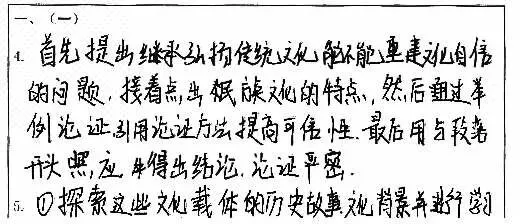 一、(一)
4. 首先提出继承弘扬传统文化能不能重建文化自信
的问题,接着点出民族文化的特点,然后通过举
例论证引用论证方法提高可信性.最后用与段落
开头照应并得出结论,论证严密.
5. ①探索这些文化载体的历史故事文化背景并进行学习